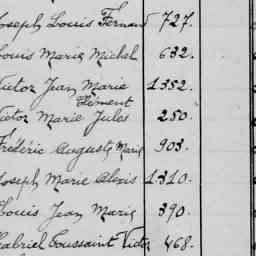 Joseph Louis Fernand 727.
Louis Marie Michel 632.
Victor Jean Marie 1352.
Clément
Victor Marie Jules 250.
Frédéric Auguste Marie 903.
Joseph Marie Alexis 1310.
Louis Jean Marie 390.
Gabriel Toussaint Victor 468.